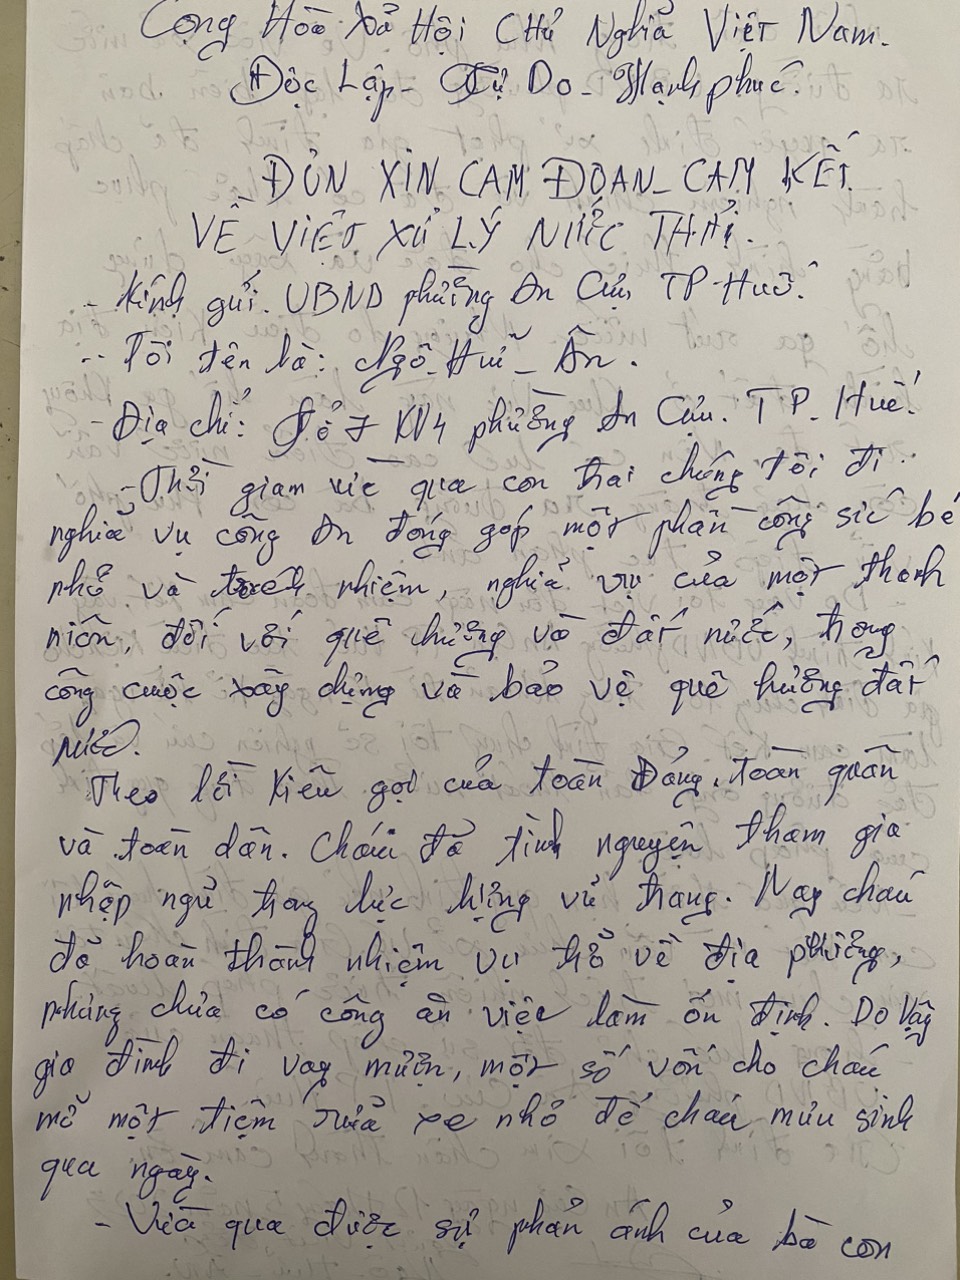 Cộng Hòa Xã Hội Chủ Nghĩa Việt Nam.
Độc Lập - Tự Do - Hạnh phúc.
ĐƠN XIN CAM ĐOAN - CAM KẾT
VỀ VIỆT XỬ LÝ NƯỚC THẢI.
- Kính gửi. UBND phường An Cựu TP-Huế.
- Tôi tên là: Ngô Hữu Ân.
- Địa chỉ: Tổ 7 KV4 phường An Cựu. TP. Huế.
- Thời giam vừc qua con trai chúng tôi đi
nghĩa vụ công An đóng góp một phần công sức bé
nhỏ và trách nhiệm, nghĩa vụ của một thanh
niên, đối với quê hương và đất nước, trong
công cuộc xây dựng và bảo vệ quê hương đất
nước.
Theo lời kiêu gọi của toàn Đảng, toàn quân
và toàn dân. Cháu đã tình nguyện tham gia
nhập ngũ trong lực lượng vũ trang. Nay cháu
đã hoàn thành nhiệm vụ trở về địa phương,
nhưng chưa có công ăn việc làm ổn định. Do vậy
gia đình đi vay mượn, một số vốn cho cháu
mở một tiệm rửa xe nhỏ để cháu mưu sinh
qua ngày.
- Vừa qua được sự phản ánh của bà con